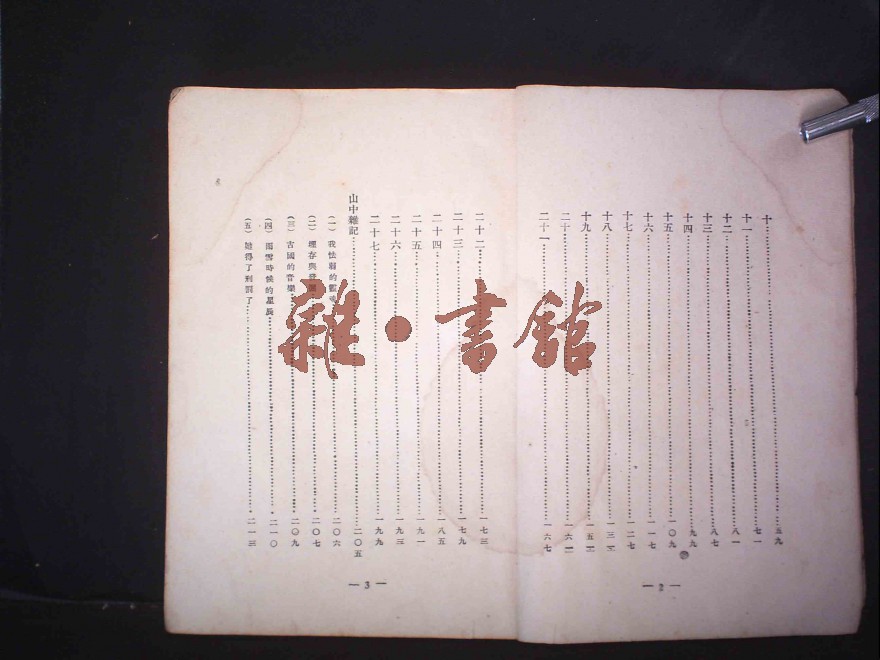 十 五九
十一 七一
十二 八一
十三 八七
十四 九九
十五 一〇九
十六 一一七
十七 一二七
十八
十九
二十
二十一 一六七
— 2 —
二十二 一七三
二十三 一七九
二十四 一八五
二十五 一九一
二十六 一九三
二十七 一九九
山中雜記 二〇五
(一) 我怯弱的靈魂 二〇六
(二) 埋存與發掘 二〇七
(三) 古國的音樂 二〇九
(四) 雨雪時候的星辰 二一〇
(五) 她得了刑罰了 二一三
— 3 —
雜·書館